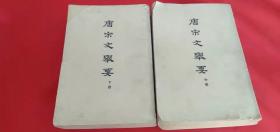 唐宋文舉要
下冊
唐宋文舉要
中冊